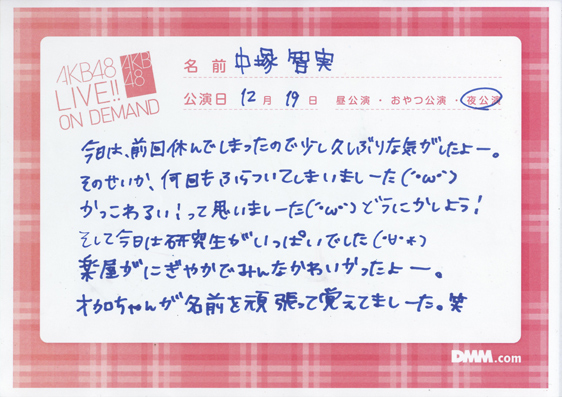 AKB48
LIVE!!
ON DEMAND
AKB
48
名前 中塚 智実
公演日 12月 19日 昼公演・おやつ公演・夜公演
今日は、前回休んでしまったので少し久しぶりな気がしたよー。
そのせいか、何回もふらついてしまいましーた(´・ω・`)
かっこわるい!って思いましーた(´・ω・`)どうにかしよう!
そして今日は研究生がいっぱいでした(・∀・*)
楽屋がにぎやかでみんなかわいかったよー。
オカロちゃんが名前を頑張って覚えてましーた。笑
DMM.com